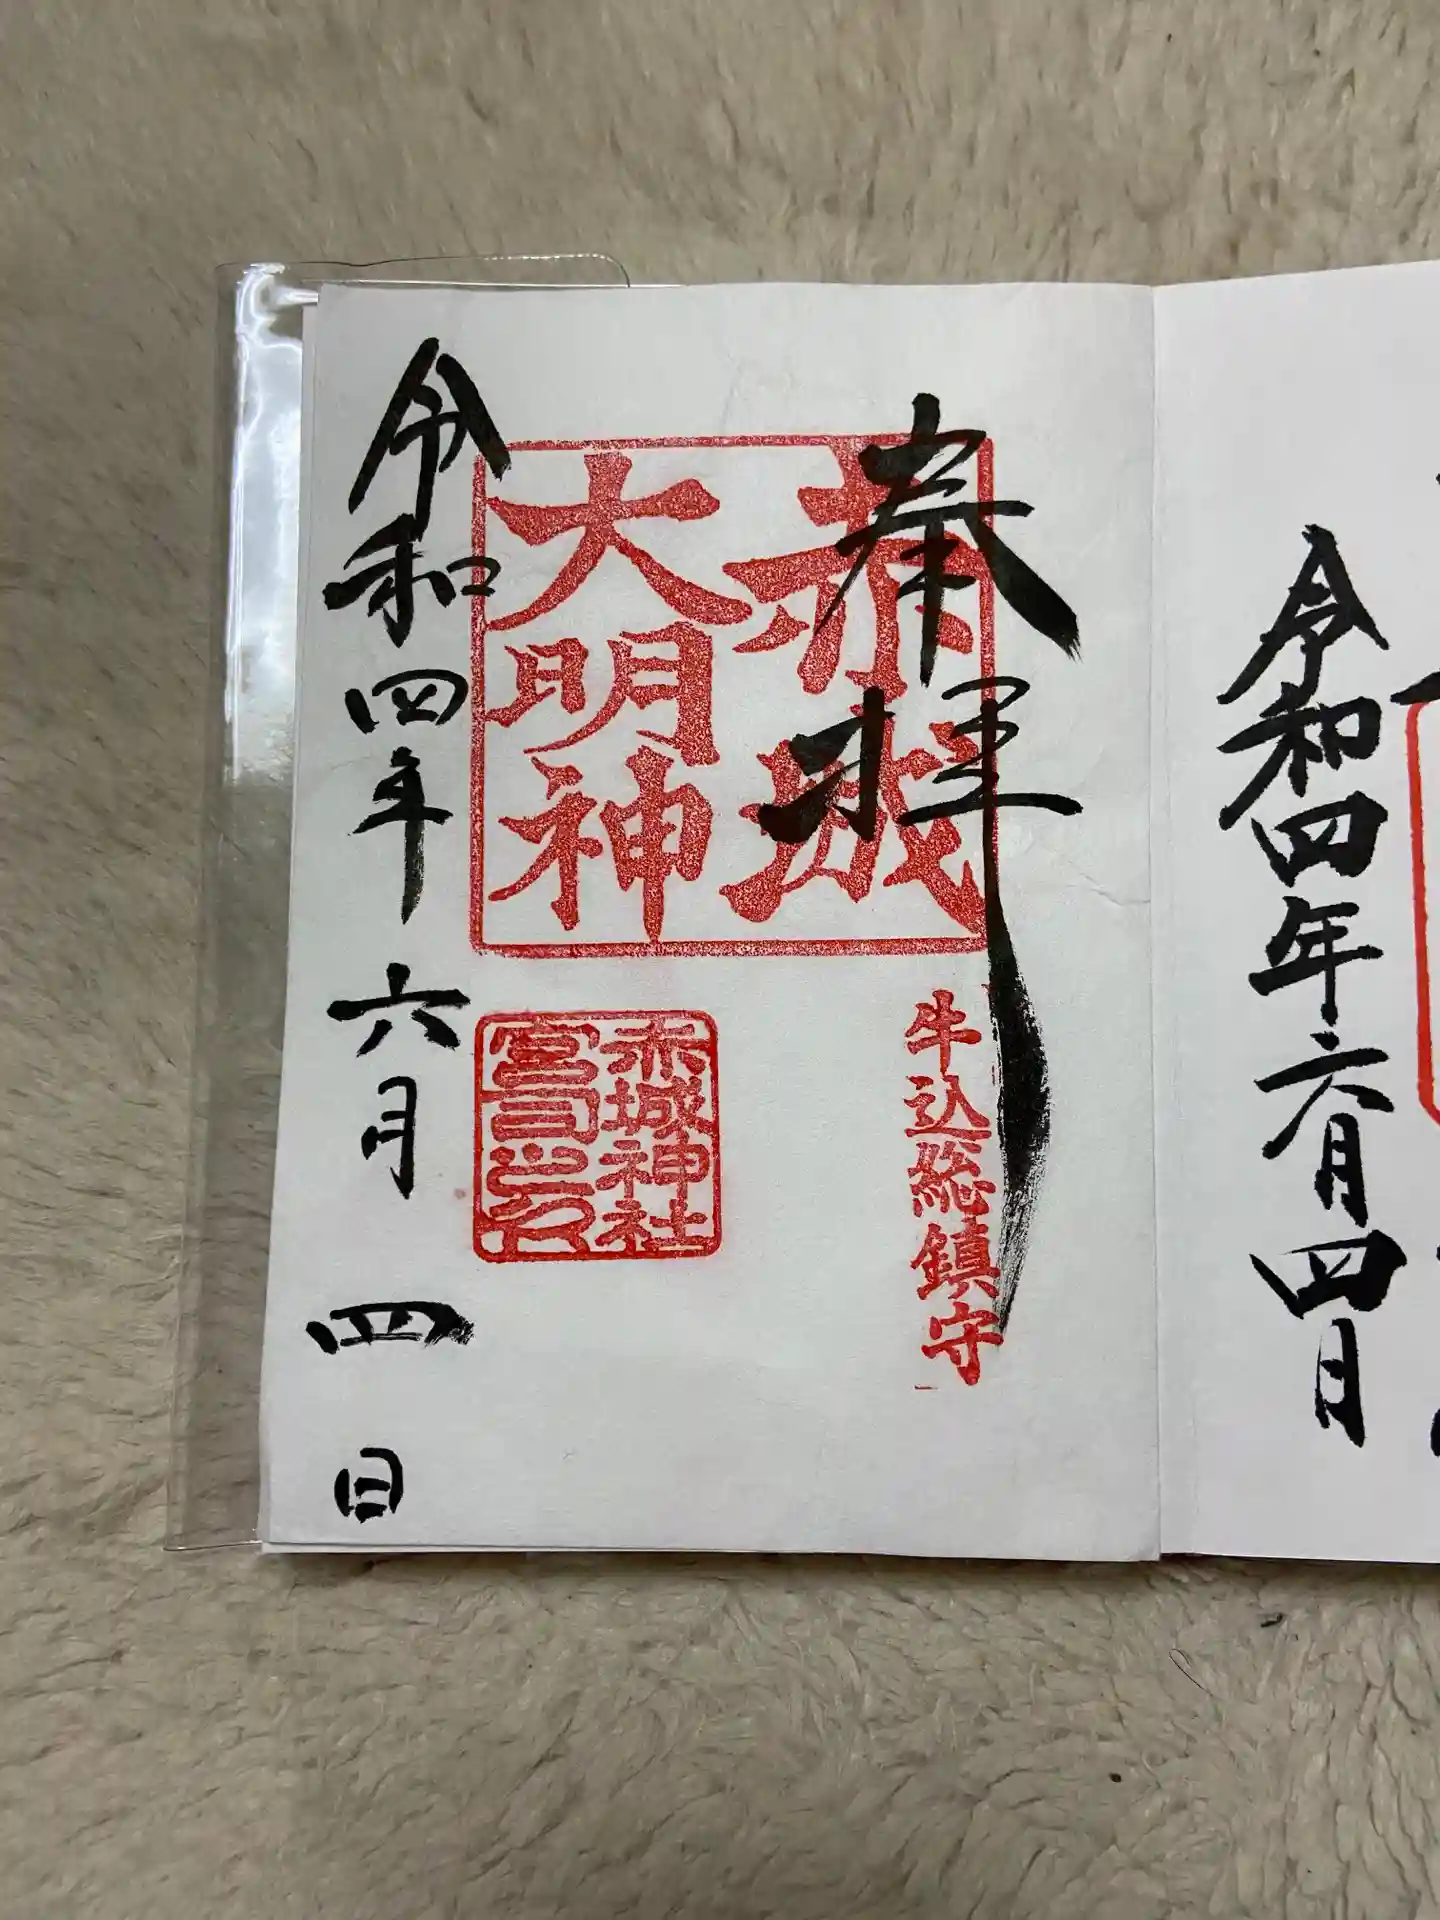 令和四年六月四日
奉拝
赤城
大明神
牛込総鎮守
赤城神社
宮司之印
令和四年六月四日